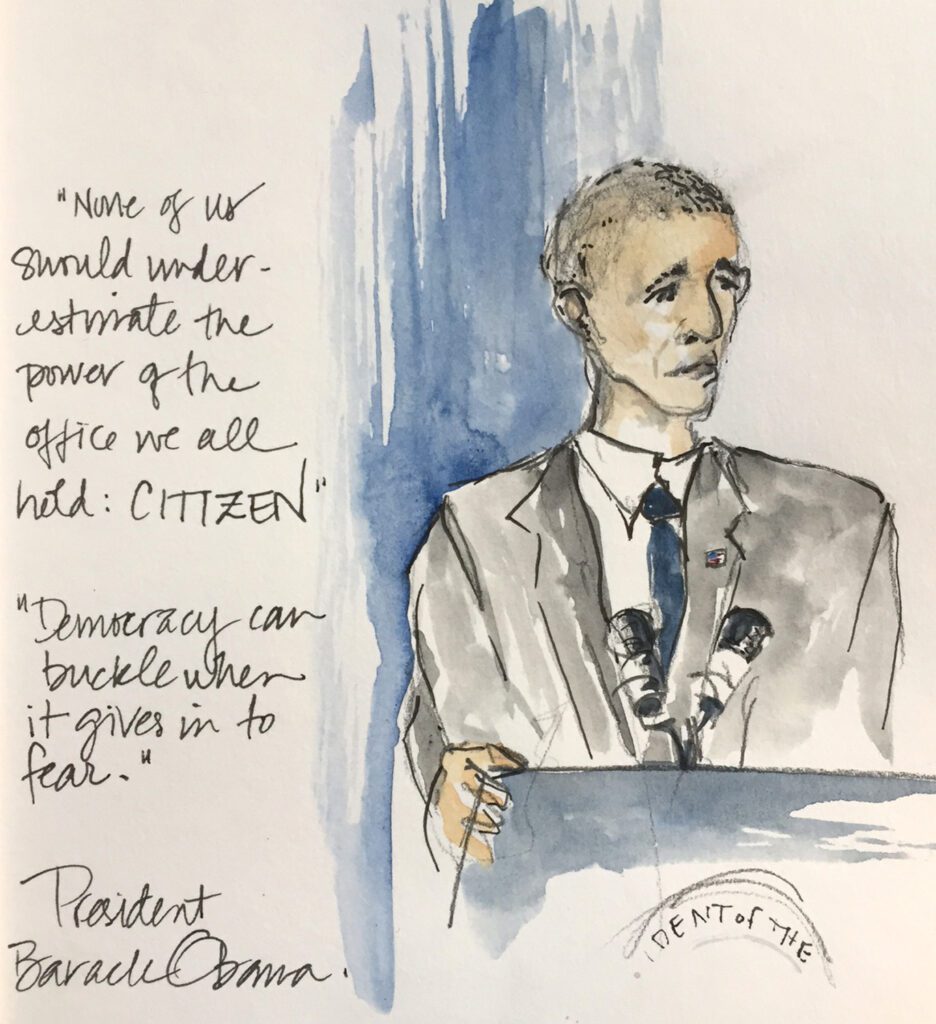 "None of us
should under-
estimate the
power of the
office we all
hold: CITIZEN"
"Democracy can
buckle when
it gives in to
fear."
President
Barack Obama.
IDENT of THE